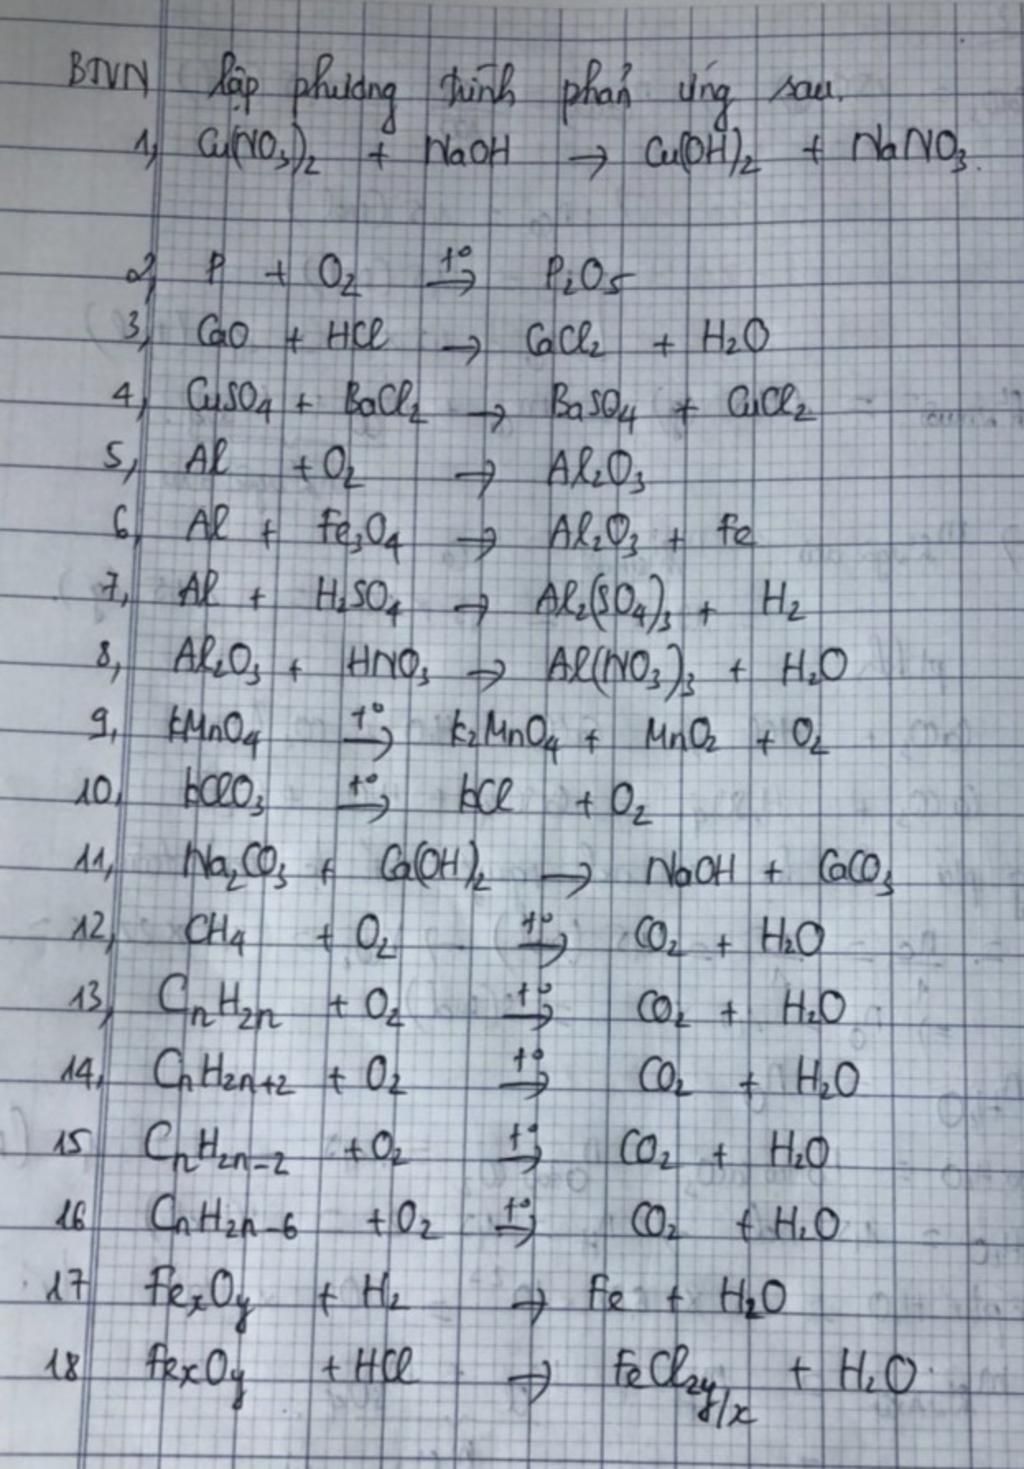 BTVN lập phương trình phản ứng sau.
1, Cu(NO₃)₂ + NaOH → Cu(OH)₂ + NaNO₃.
2, P + O₂ t° → P₂O₅
3, CaO + HCl → CaCl₂ + H₂O
4, CuSO₄ + BaCl₂ → BaSO₄ + CuCl₂
5, Al + O₂ → Al₂O₃
6, Al + Fe₃O₄ → Al₂O₃ + Fe
7, Al + H₂SO₄ → Al₂(SO₄)₃ + H₂
8, Al₂O₃ + HNO₃ → Al(NO₃)₃ + H₂O
9, KMnO₄ t° → K₂MnO₄ + MnO₂ + O₂
10, KClO₃ t° → KCl + O₂
11, Na₂CO₃ + Ca(OH)₂ → NaOH + CaCO₃
12, CH₄ + O₂ t° → CO₂ + H₂O
13, CnH2n + O₂ t° → CO₂ + H₂O
14, CnH2n+2 + O₂ t° → CO₂ + H₂O
15 CnH2n-2 + O₂ t° → CO₂ + H₂O
16 CnH2n-6 + O₂ t° → CO₂ + H₂O
17 FexOy + H₂ → Fe + H₂O
18 FexOy + HCl → FeCl2y/x + H₂O